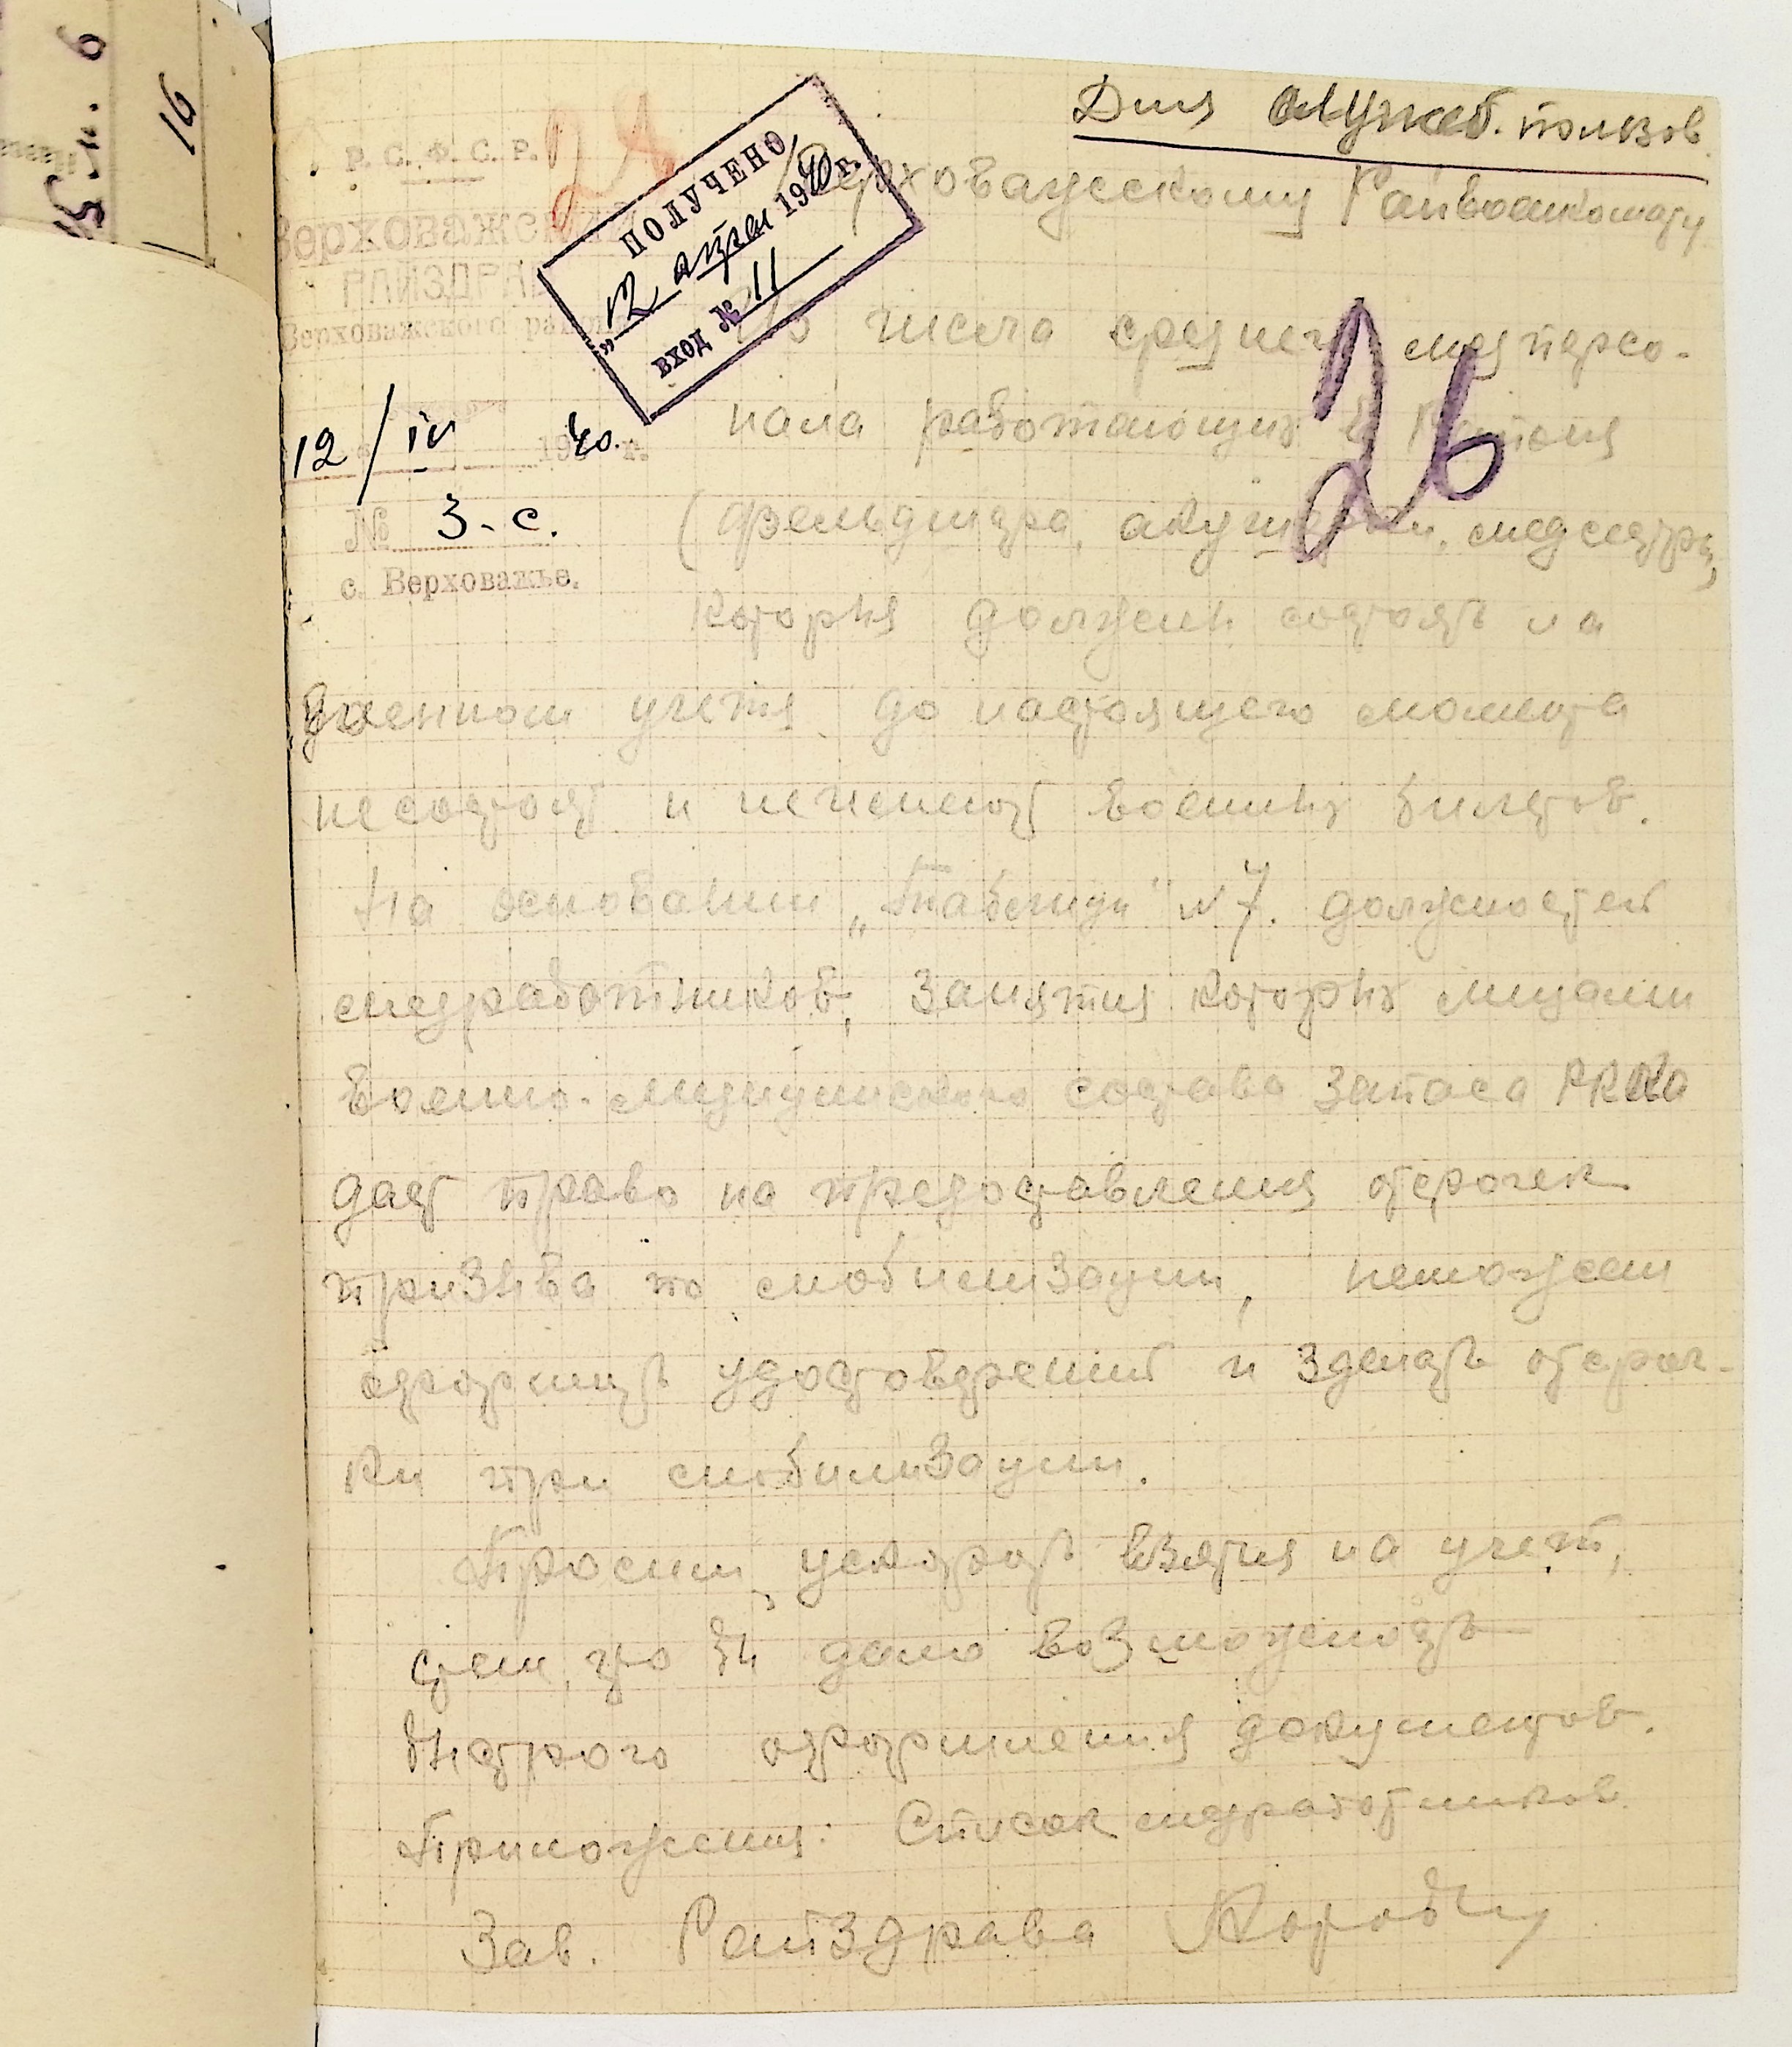 Для служеб. пользов.
Р. С. Ф. С. Р.
28
Верховажский
РАЙЗДРАВ
Верховажского района
ПОЛУЧЕНО
„12 апрел 1940 г.
вход № 11
Верховажскому Райвоенкомату
26
12/IV 1940 г.
№ 3-с.
с. Верховажье.
Из числа среднего медперсо-
нала работающих в Районе
(фельдшера, акушерки, медсестры,
которыя должны состоять на
военном учете до настоящего момента
не состоят и неимеют военных билетов.
На основании „Таблицы" № 7. должностей
медработников, занятия которых лицами
военно-медицинского состава запаса РККА
дает право на предоставления отсрочек
призыва по мобилизации, неможем
оформить удостоверений и зделать отсроч-
ки при мобилизации.
Просим, ускорить взятия на учет,
с тем, что бы дало возможность
быстрого оформления документов.
Приложения: Список медработников.
Зав. Райздрава
5 н. 6
16